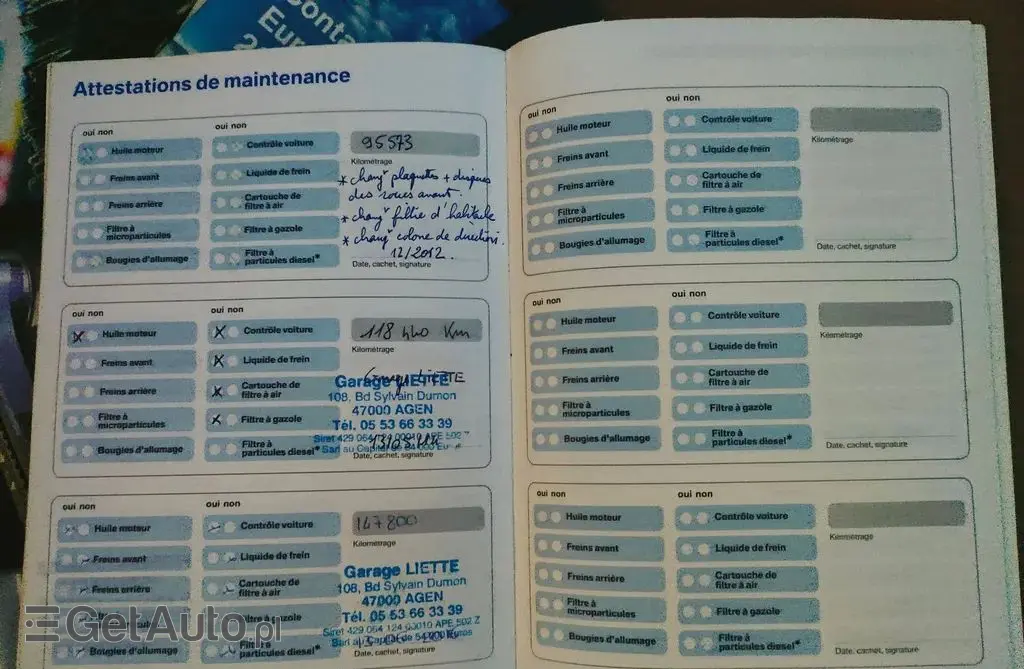 conta
Eur
Attestations de maintenance
oui non
oui non
Huile moteur
Contrôle voiture
95573
Kilométrage
Freins avant
Liquide de frein
* chang^t plaquettes + disques
des roues avant.
Freins arrière
Cartouche de
filtre à air
* chang^t filtre d'habitacle
Filtre à
microparticules
Filtre à gazole
* chang^t colone de direction.
12/2012.
Bougies d'allumage
Filtre à
particules diesel*
Date, cachet, signature
oui non
oui non
Huile moteur
Contrôle voiture
118 440 Km
Kilométrage
Freins avant
Liquide de frein
Freins arrière
Cartouche de
filtre à air
Garage LIETTE
108, Bd Sylvain Dumon
47000 AGEN
Tél. 05 53 66 33 39
Siret 429 064 124 00010 APE 502 Z
Sarl au Capital de
Filtre à
microparticules
Filtre à gazole
Bougies d'allumage
Filtre à
particules diesel*
Date, cachet, signature
oui non
oui non
Huile moteur
Contrôle voiture
147800
Kilométrage
Freins avant
Liquide de frein
Freins arrière
Cartouche de
filtre à air
Garage LIETTE
108, Bd Sylvain Dumon
47000 AGEN
Tél. 05 53 66 33 39
Siret 429 064 124 00010 APE 502 Z
Sarl au Capital de 54 000 Euros
Filtre à gazole
Bougies d'allumage
Filtre à
particules diesel*
Date, cachet, signature
oui non
oui non
Huile moteur
Contrôle voiture
Kilométrage
Freins avant
Liquide de frein
Freins arrière
Cartouche de
filtre à air
Filtre à
microparticules
Filtre à gazole
Bougies d'allumage
Filtre à
particules diesel*
Date, cachet, signature
oui non
oui non
Huile moteur
Contrôle voiture
Kilométrage
Freins avant
Liquide de frein
Freins arrière
Cartouche de
filtre à air
Filtre à
microparticules
Filtre à gazole
Bougies d'allumage
Filtre à
particules diesel*
Date, cachet, signature
oui non
oui non
Huile moteur
Contrôle voiture
Kilométrage
Freins avant
Liquide de frein
Freins arrière
Cartouche de
filtre à air
Filtre à
microparticules
Filtre à gazole
Bougies d'allumage
Filtre à
particules diesel*
Date, cachet, signature
GetAuto.pl